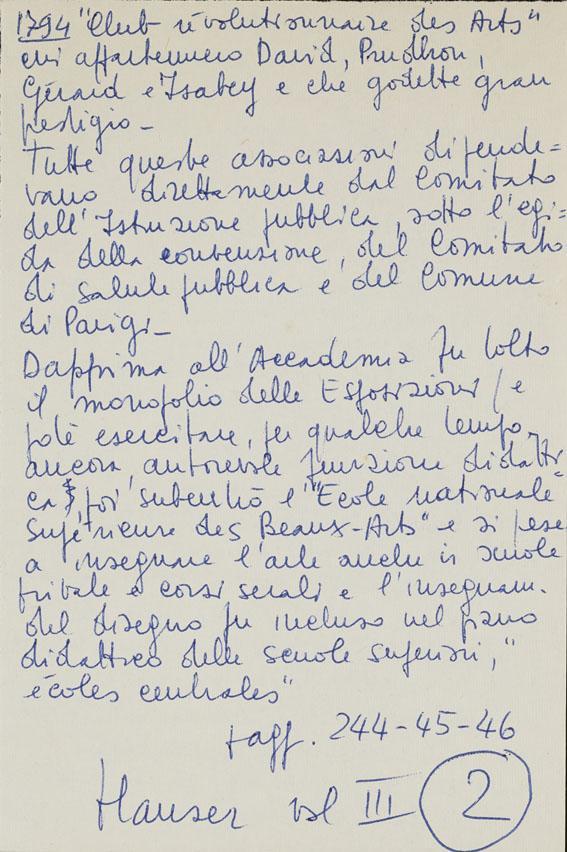 1794 "Club révolutionnaire des Arts"
cui appartennero David, Prudhon,
Gérard e Isabey e che godette gran
prestigio_
Tutte queste associazioni dipende=
vano direttamente dal Comitato
dell'Istruzione pubblica, sotto l'egi=
da della convenzione, del Comitato
di Salute pubblica e del Comune
di Parigi_
Dapprima all'Accademia fu tolto
il monopolio delle Esposizioni / e
potè esercitare, per qualche tempo,
ancora, autorevole funzione didatti
ca, poi subentrò l'"Ecole nationale
Supérieure des Beaux-Arts" e si prese
a insegnare l'arte anche in scuole
private e corsi serali e l'insegnam.
del disegno fu incluso nel piano
didattico delle scuole superiori, "
écoles centrales"
pagg. 244-45-46
Hauser vol III 2